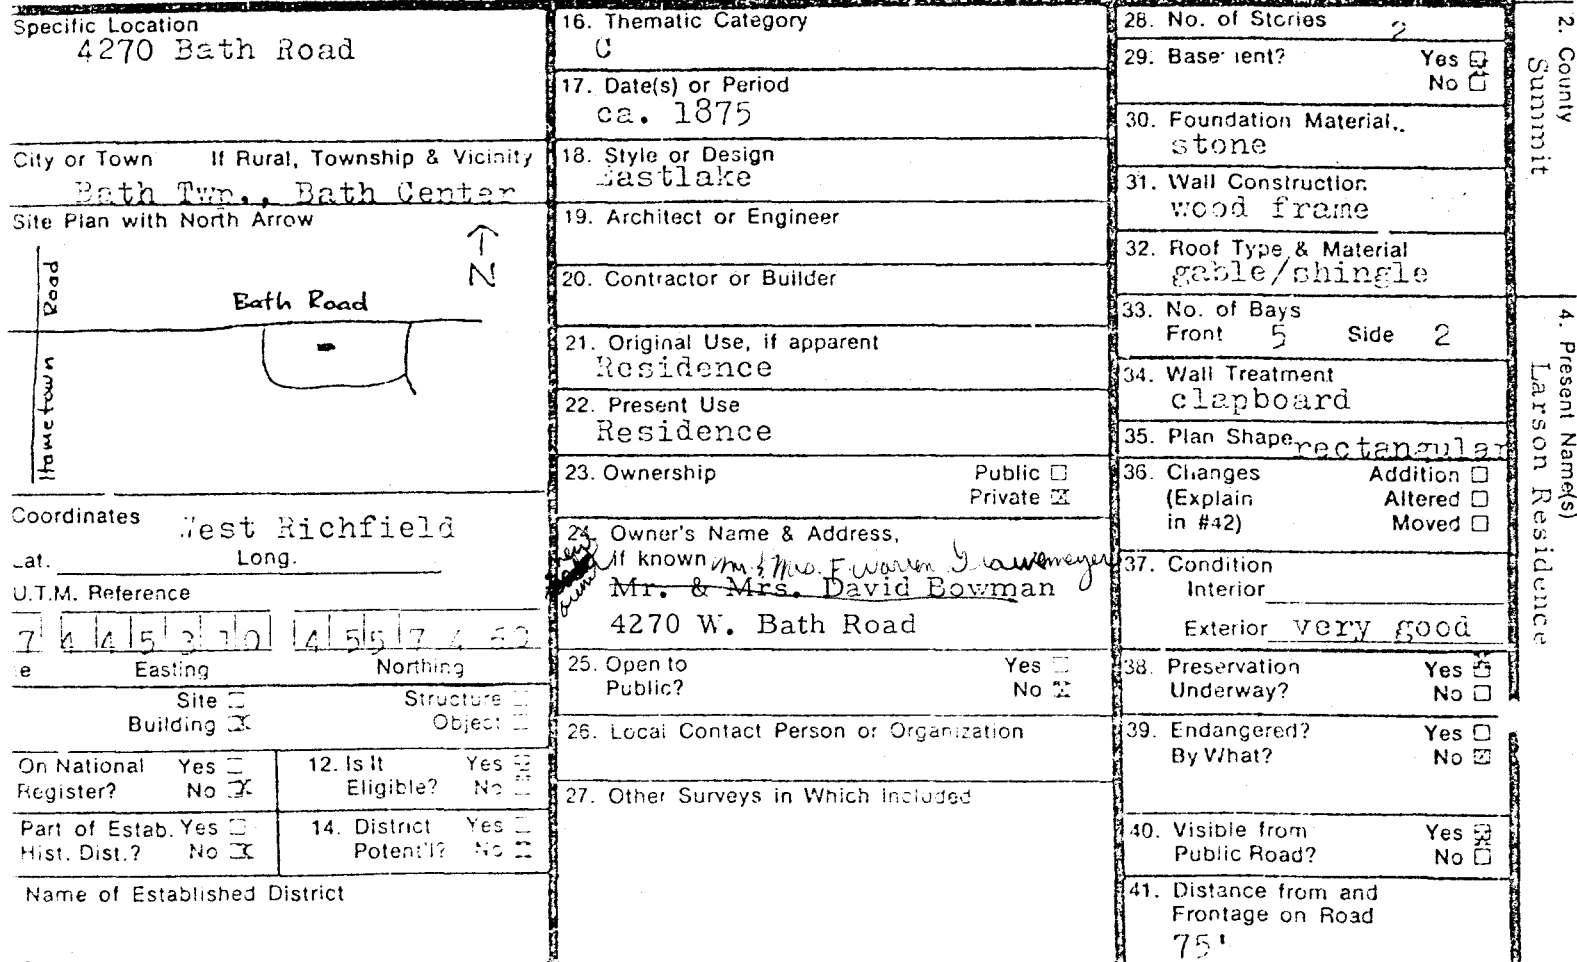 Specific Location
4270 Bath Road
City or Town If Rural, Township & Vicinity
Bath Twp., Bath Center
Site Plan with North Arrow
N
Bath Road
Hametown Road
Coordinates
West Richfield
Lat. Long.
U.T.M. Reference
7 4 4 5 3 1 0 4 5 5 7 4
Easting Northing
Site Structure
Building Object
On National Register? Yes No
12. Is It Eligible? Yes No
Part of Estab. Hist. Dist.? Yes No
14. District Potent'l? Yes No
Name of Established District
16. Thematic Category
C
17. Date(s) or Period
ca. 1875
18. Style or Design
Eastlake
19. Architect or Engineer
20. Contractor or Builder
21. Original Use, if apparent
Residence
22. Present Use
Residence
23. Ownership Public
Private
24. Owner's Name & Address,
if known Mr. & Mrs. F. Warren
Mr. & Mrs. David Bowman
4270 W. Bath Road
25. Open to Yes
Public? No
26. Local Contact Person or Organization
27. Other Surveys in Which Included
28. No. of Stories 2
29. Basement? Yes
No
30. Foundation Material
stone
31. Wall Construction
wood frame
32. Roof Type & Material
gable/shingle
33. No. of Bays
Front 5 Side 2
34. Wall Treatment
clapboard
35. Plan Shape rectangular
36. Changes Addition
(Explain Altered
in #42) Moved
37. Condition
Interior
Exterior very good
38. Preservation Yes
Underway? No
39. Endangered? Yes
By What? No
40. Visible from Yes
Public Road? No
41. Distance from and
Frontage on Road
75'
2. County
Summit
4. Present Name(s)
Larson Residence